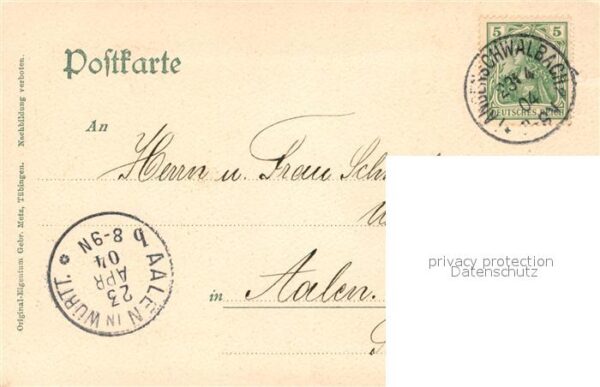 Postkarte
5 5
DEUTSCHES REICH
LANGENSCHWALBACH
23 4
04
An
Herrn u. Frau Sch
in Aalen.
AALEN IN WÜRTT.
23
APR
04
8-9N
b
Original-Eigentum Gebr. Metz, Tübingen. Nachbildung verboten.
privacy protection
Datenschutz